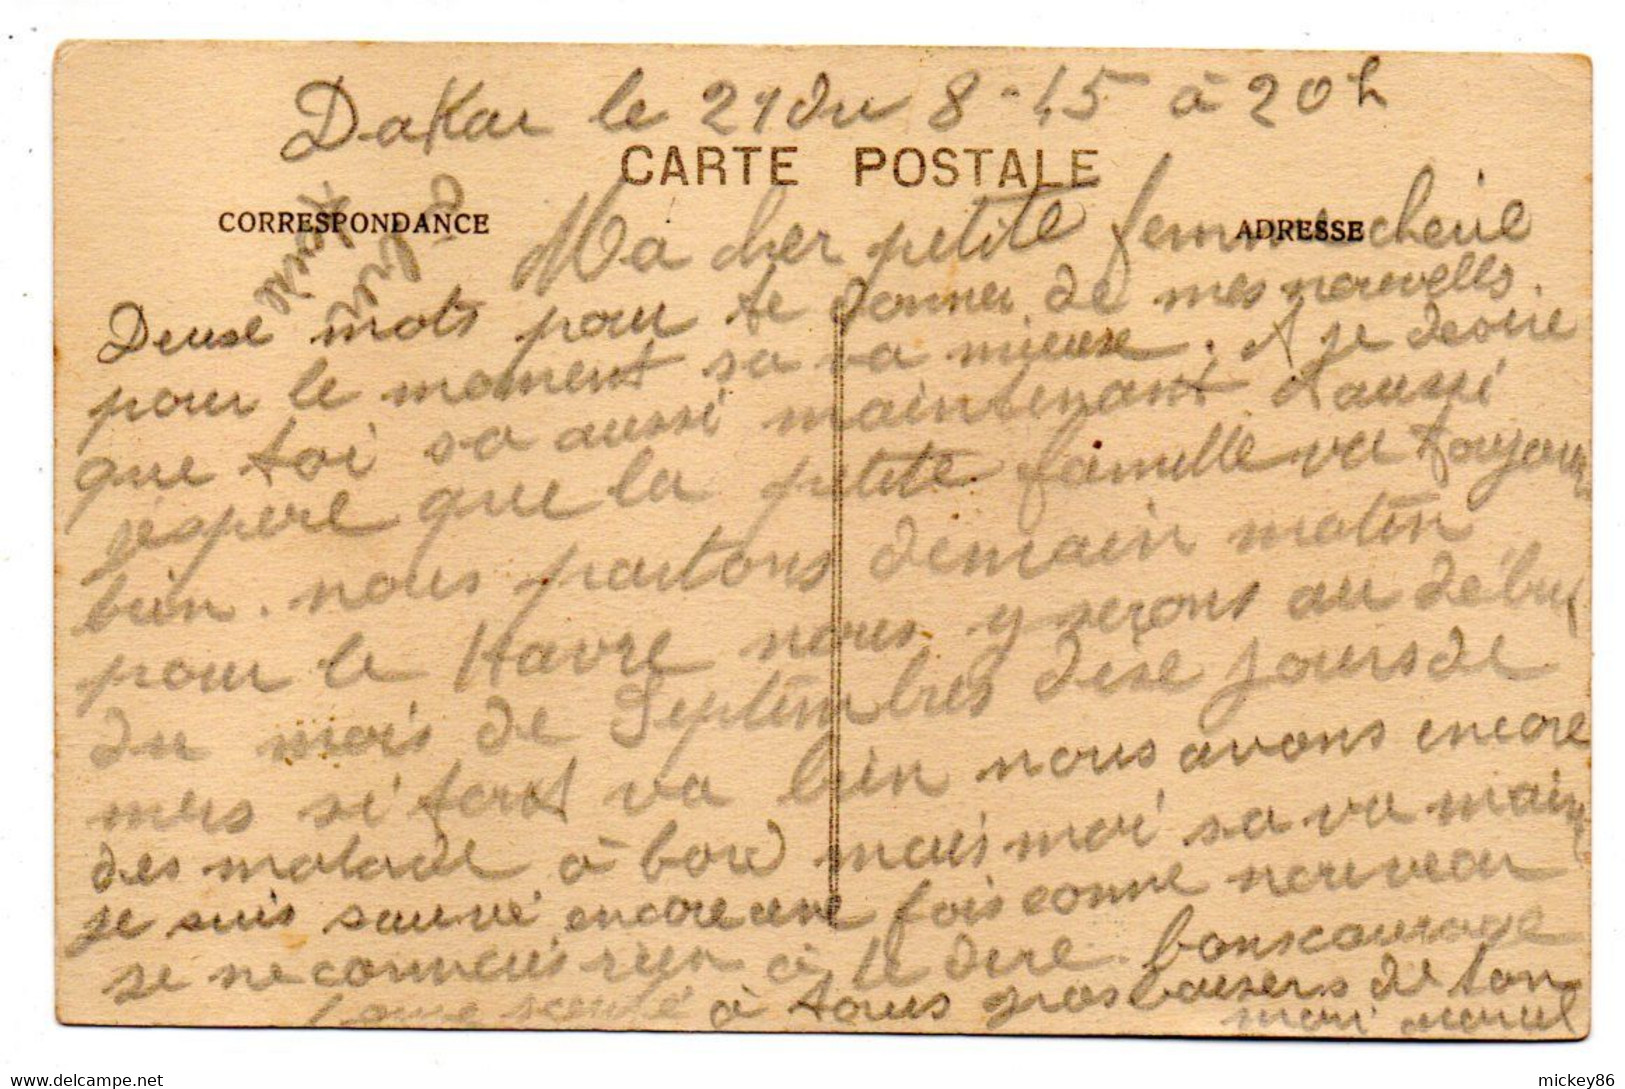 Dakar le 21 du 8-45 à 20h
CARTE POSTALE
CORRESPONDANCE
ADRESSE
Ma cher petite femme cherie
Deuse mots pour te donner de mes nouvells.
pour le moment sa va mieuse. A je desire
que toi sa aussi maintenant d'aussi
j'espere que la petite famille va toujour
bien. nous partons demain matin
pour le Havre nous y serons au début
du mois de Septembres dise jours de
mers si tout va bien nous avons encore
des malade à bord mais moi sa va maint
je suis sauvé encore une fois conne nouveau
se ne connais rien à te dire. bonscourage
bonne santé à tous gros baisers de ton
mari
mickey86
delcampe.net